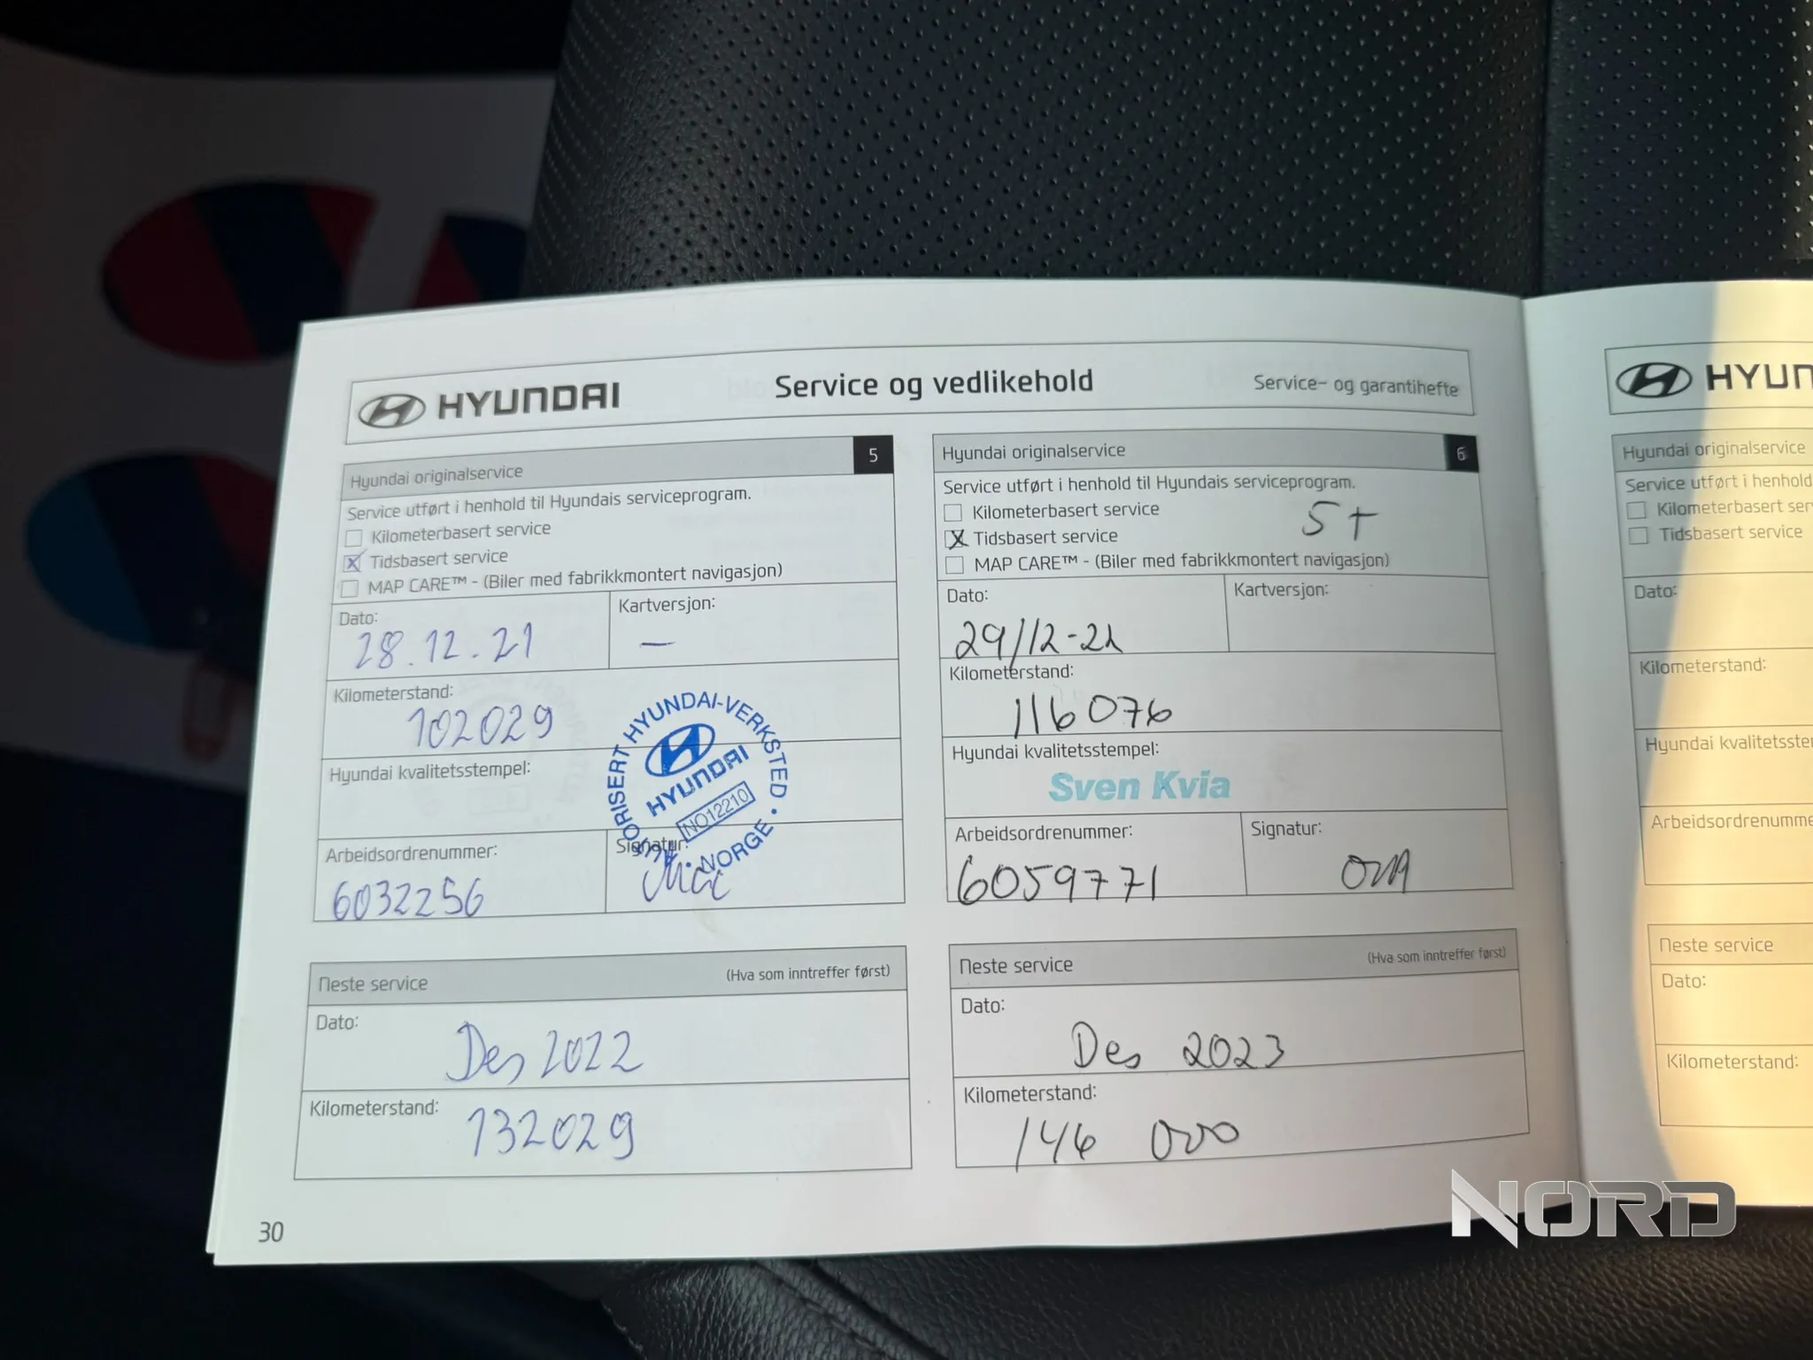 HYUNDAI
Service og vedlikehold
Service- og garantihefte
Hyundai originalservice
5
Service utført i henhold til Hyundais serviceprogram.
Kilometerbasert service
Tidsbasert service
MAP CARE™ - (Biler med fabrikkmontert navigasjon)
Dato:
28.12.21
Kartversjon:
—
Kilometerstand:
102029
Hyundai kvalitetsstempel:
AUTORISERT HYUNDAI-VERKSTED • NORGE •
HYUNDAI
NO12210
Arbeidsordrenummer:
6032256
Signatur:
Neste service
(Hva som inntreffer først)
Dato:
Des 2022
Kilometerstand:
132029
Hyundai originalservice
6
Service utført i henhold til Hyundais serviceprogram.
Kilometerbasert service
5+
Tidsbasert service
MAP CARE™ - (Biler med fabrikkmontert navigasjon)
Dato:
29/12-22
Kartversjon:
Kilometerstand:
116076
Hyundai kvalitetsstempel:
Sven Kvia
Arbeidsordrenummer:
6059771
Signatur:
Neste service
(Hva som inntreffer først)
Dato:
Des 2023
Kilometerstand:
146 000
30
HYUN
Hyundai originalservice
Service utført i henhold
Kilometerbasert ser
Tidsbasert service
Dato:
Kilometerstand:
Hyundai kvalitetsste
Arbeidsordrenumme
Neste service
Dato:
Kilometerstand:
NORD